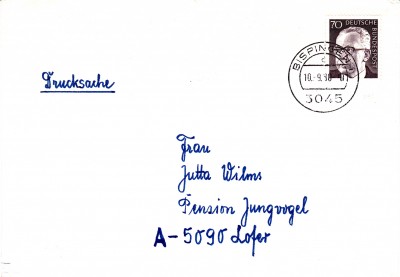 70
DEUTSCHE BUNDESPOST
BISPINGEN
10.-9.80
3045
Drucksache
Frau
Jutta Wilms
Pension Jungvogel
A-5090 Lofer